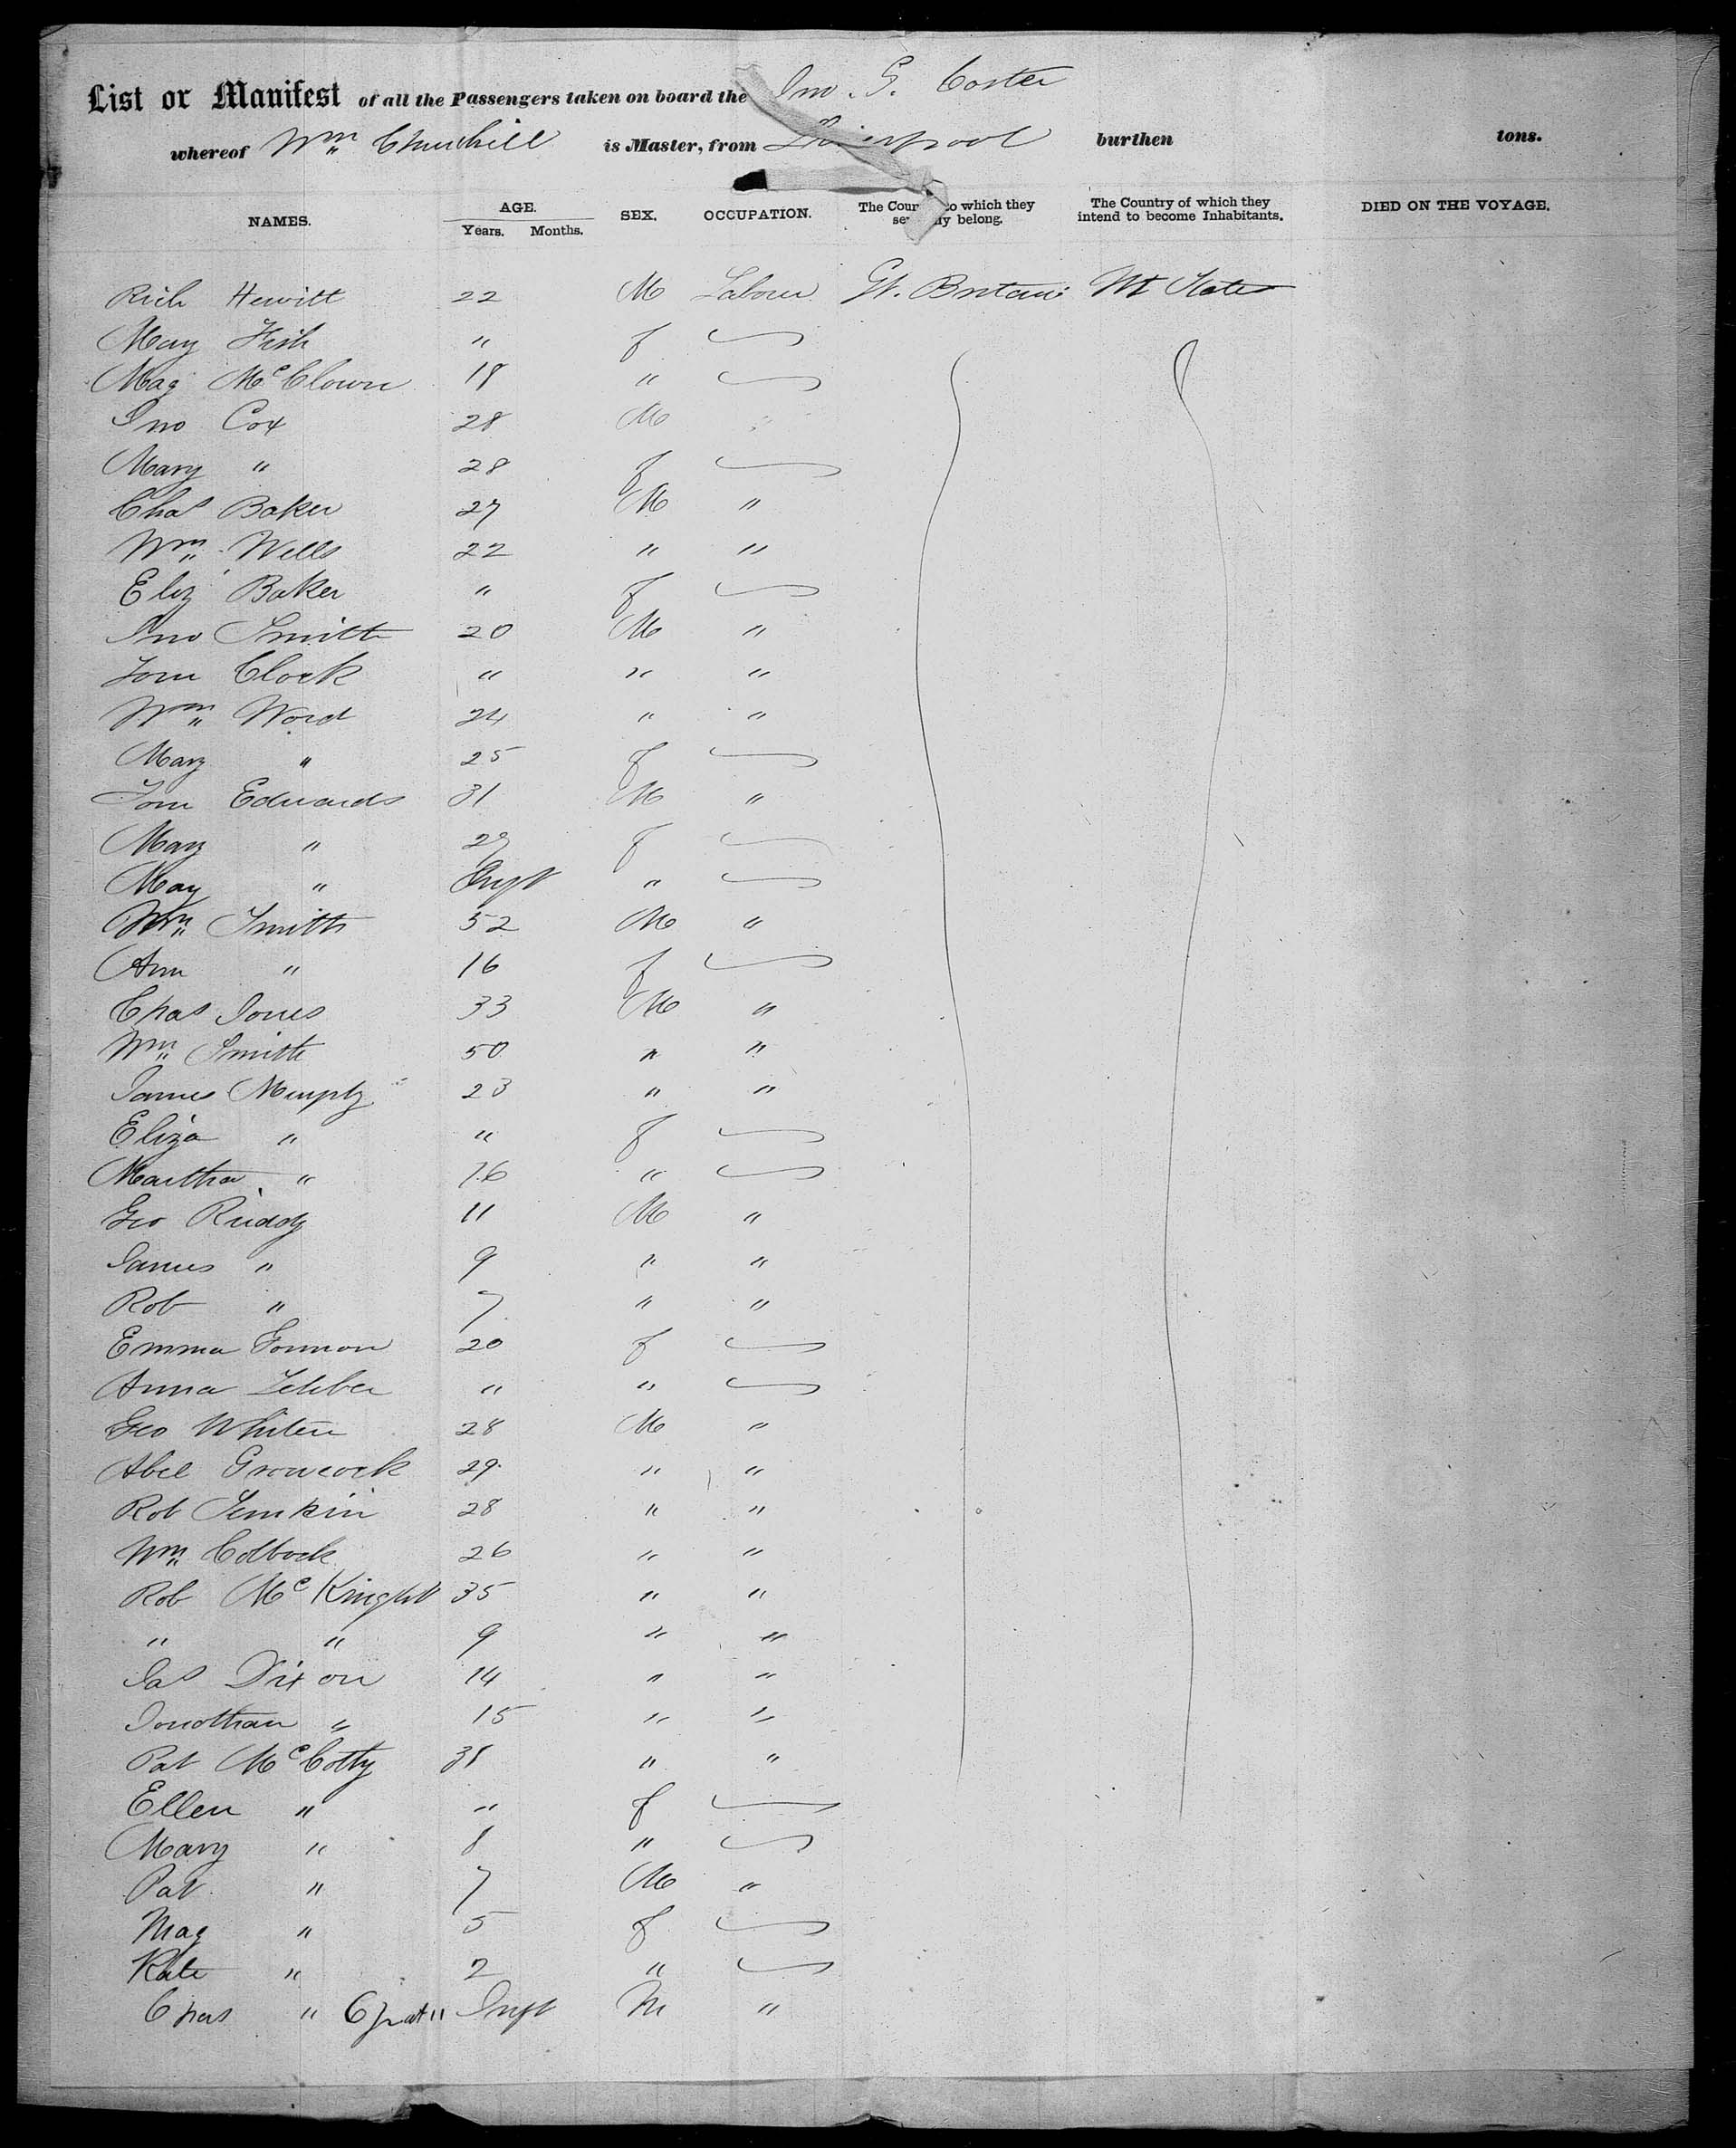 List or Manifest of all the Passengers taken on board the Jno. G. Coster
whereof Wm Churchill is Master, from Liverpool burthen tons.
NAMES. AGE. Years. Months. SEX. OCCUPATION. The Coun to which they se ly belong. The Country of which they intend to become Inhabitants. DIED ON THE VOYAGE.
Rich Hewitt 22 M Labour Gt. Britain Ut States
Mary Fish " f
Mag McClown 18 "
Jno Cox 28 M "
Mary " 28 f
Chas Baker 27 M "
Wm Wells 22 " "
Eliz Baker " f
Jno Smith 20 M "
Tom Clark " " "
Wm Ward 24 " "
Mary " 25 f
Tom Edwards 31 M "
Mary " 29 f
May " Inft "
Wm Smith 52 M "
Ann " 16 f
Chas Jones 33 M "
Wm Smith 50 " "
James Murphy 23 " "
Eliza " " f
Martha " 16 "
Geo Ruddy 11 M "
James " 9 " "
Rob " 7 " "
Emma 20 f
Anna " "
Geo 28 M "
Abel Growcock 29 " "
Rob 28 " "
Wm Colbock 26 " "
Rob McKnight 35 " "
" " 9 " "
Jas Dixon 14 " "
Jonathan " 15 " "
Pat McCotty 31 " "
Ellen " " f
Mary " 8 "
Pat " 7 M "
Mag " 5 f
Kate " 2 "
Chas " Inft M "